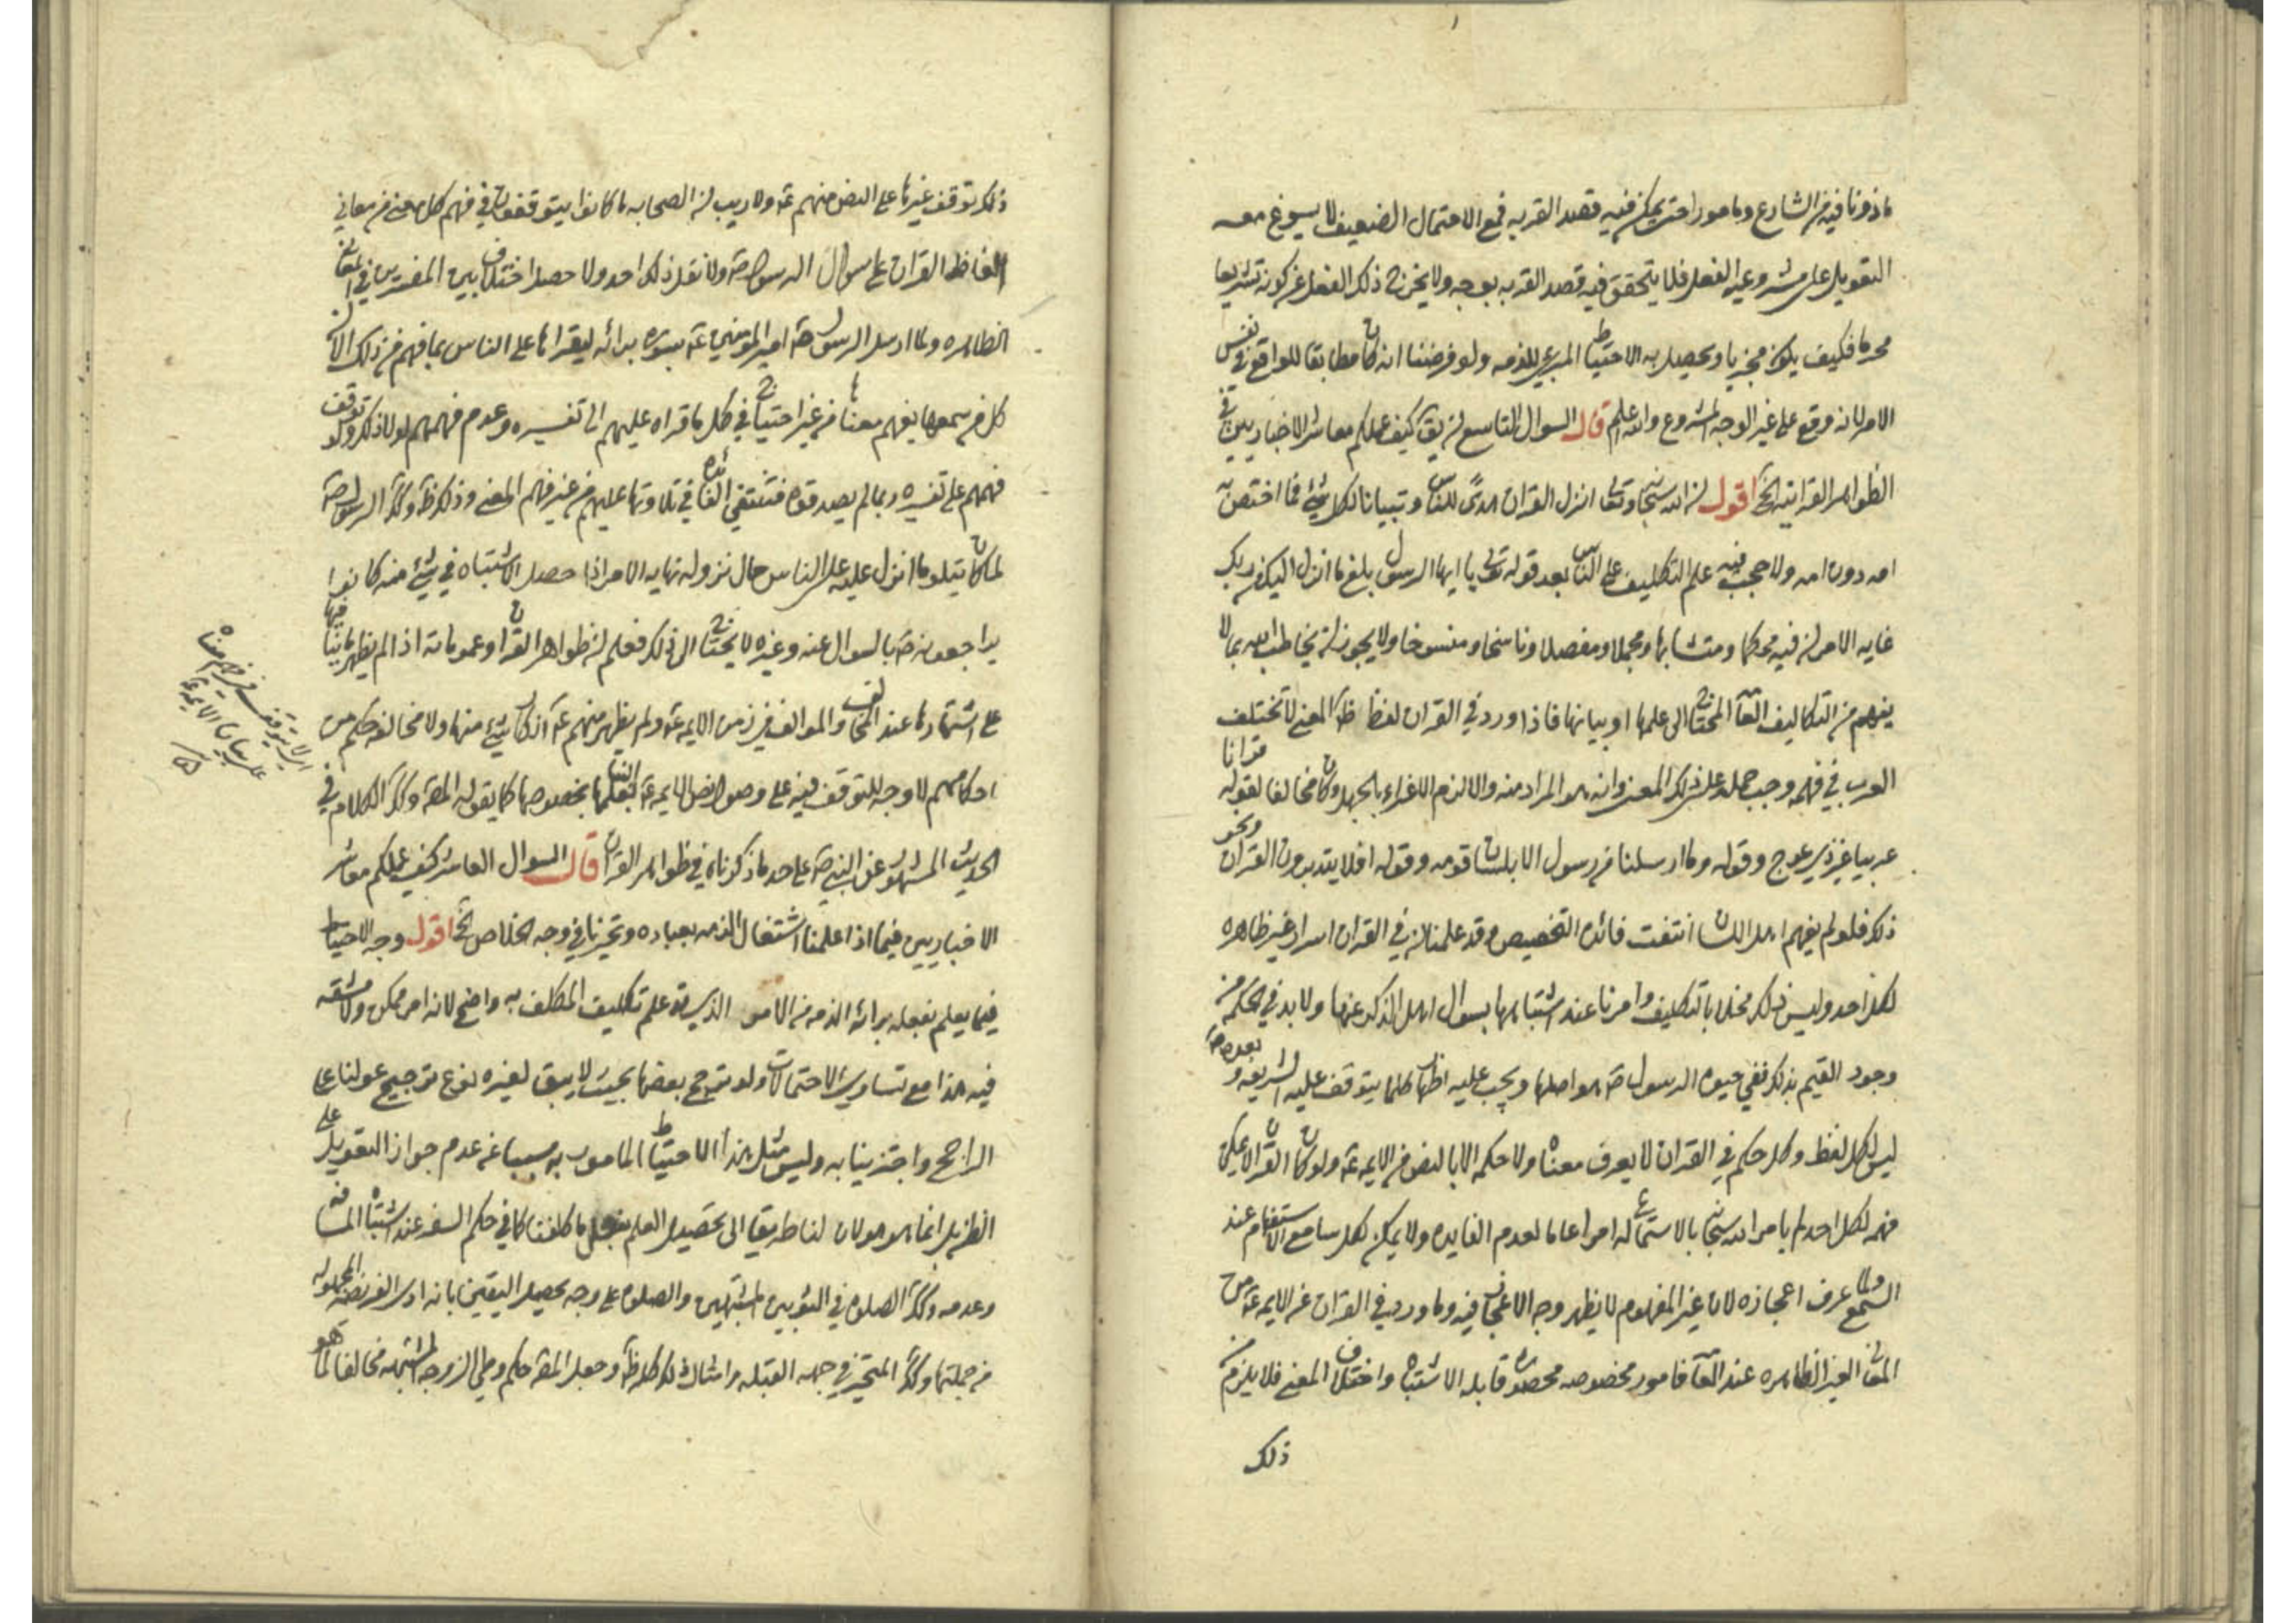 ماذونا فيه من الشارع ومامورا حتى يمكن فيه قصد القربه فمع الاحتمال الضعيف لا يسوغ معه
التعويل على مشروعيه الفعل فلا يتحقق فيه قصد القربه بوجه ولا يخرج ذلك الفعل عن كونه تشريعا
محرما فكيف يكون مجزيا ويحصل به الاحتياط المبرئ للذمه ولو فرضنا انه كان مطابقا للواقع في نفس
الامر لانه وقع على غير الوجه المشروع والله اعلم قال السوال التاسع ان يق كيف عملكم معاشر الاخباريين في
الظواهر القرانيه الخ اقول ان الله سبحانه وتعالى انزل القران هدى للناس وتبيانا لكل شئ فما اختص به
امه دون امه ولا حجب فيه علم التكليف على الناس بعد قوله تعالى يا ايها الرسول بلغ ما انزل اليك من ربك
غايه الامر ان فيه محكما ومتشابها ومجملا ومفصلا وناسخا ومنسوخا ولا يجوز ان يخاطب الله بما لا
يفهم من التكاليف العامه المحتاج الى علمها او بيانها فاذا ورد في القران لفظ ظاهر المعنى لا تختلف
العرب في فهمه وجب حمله على ذلك المعنى وانه هو المراد منه والا لزم الاغراء بالجهل وكان مخالفا لقوله قرانا
عربيا غير ذي عوج وقوله وما ارسلنا من رسول الا بلسان قومه وقوله افلا يتدبرون القران ونحو
ذلك فلو لم يفهم اهل اللسان انتفت فائده التخصيص وقد علمنا ان في القران اسرار غير ظاهره
لكل احد وليس ذلك مخلا بالتكليف وامرنا عند اشتباهها بسوال اهل الذكر عنها ولا بد في الحكمه من
وجود القيم بذلك ففي حيوه الرسول ص هو اصلها ويجب عليه اظهار كلما يتوقف عليه الشريعه وبعده ص
ليس لكل لفظ وكل حكم في القران لا يعرف معناه ولا حكمه الا بالنص من الايمه ع ولو كان القران لا يمكن
فهمه لكل احد لم يامر الله سبحانه بالاستماع له امرا عاما لعدم الفايده ولا يمكن لكل سامع الاستفهام عند
السمع ولما عرف اعجازه لان غير المفهوم لا يظهر وجه الاعجاز فيه وما ورد في القران عن الايمه ع من
المعاني الغير الظاهره عند العامه فامور مخصوصه محصوره قابله الاشتباه واختلاف المعنى فلا يلزم من
ذلك
ذلك توقف غيرها على النص منهم ع ولا ريب ان الصحابه ما كانوا يتوقفون في فهم كل معنى من معاني
الفاظ القران على سوال الرسول ص ولا نقل ذلك احد ولا حصل اختلاف بين المفسرين في المعاني
الظاهره ولما ارسل الرسول ص امير المومنين ع بسوره برائه ليقراها على الناس بما فهم من ذلك الا ان
كل من سمعها يفهم معناها من غير احتياج في كل ما قراه عليهم الى تفسيره وعدم فهمهم لولا ذلك ولو توقف
فهمهم على تفسيره ربما لم يصدقوه فتنتفي الفائده في تلاوتها عليهم من غير فهم المعنى وذلك ظاهر وكذا الرسول ص
لما كان يتلو ما انزل عليه على الناس حال نزوله نهايه الامر اذا حصل الاشتباه في شئ منه كانوا
يراجعونه ص بالسوال عنه وغيره لا يحتاج الى ذلك فعلم ان ظواهر القران وعموماته اذا لم يظهر ما ينافيها
على اشتهارها عند المخالف والموالف في زمن الايمه ع ولم يظهر منهم ع انكار شئ منها ولا مخالفه حكم من
احكامهم لا وجه للتوقف فيه على وصول نص الايمه ع الينا بحكمها بخصوصها كما يقوله المص وكذا الكلام في
الحديث المشهور عن النبي ص على حد ما ذكرناه في ظواهر القران قال السوال العاشر كيف عملكم معاشر
الاخباريين فيما اذا علمنا اشتغال الذمه بعباده وتحيرنا في وجه الخلاص الخ اقول وجه الاحتياط
فيما يعلم بفعله برائه الذمه من الامور الذي قد علم تكليف المكلف به واضح لانه امر ممكن ولا مشقه
فيه هذا مع تساوي الاحتمالات ولو ترجح بعضها بحيث لا يبق لغيره نوع ترجيح عولنا على
الراجح واجتزينا به وليس مثل هذا الاحتياط المامور به مسببا عن عدم جواز التعويل على
الظن بل انما هو هو لان لنا طريقا الى تحصيل العلم بفعل ما كلفنا كما في حكم السفر عند اشتباه المسافه
وعدمه وكذا الصلوه في الثوبين المشتبهين والصلوه على وجه يحصل اليقين بانه ادى الفريضه المجهوله
من جملتها وكذا المتحير في جهه القبله وامثال ذلك كله ظاهر وجعل المص حكم وطي الزوجه المشتبهه مخالفا لما هو
اي لا يتوقف فهم معناه
على بيان الايمه ع